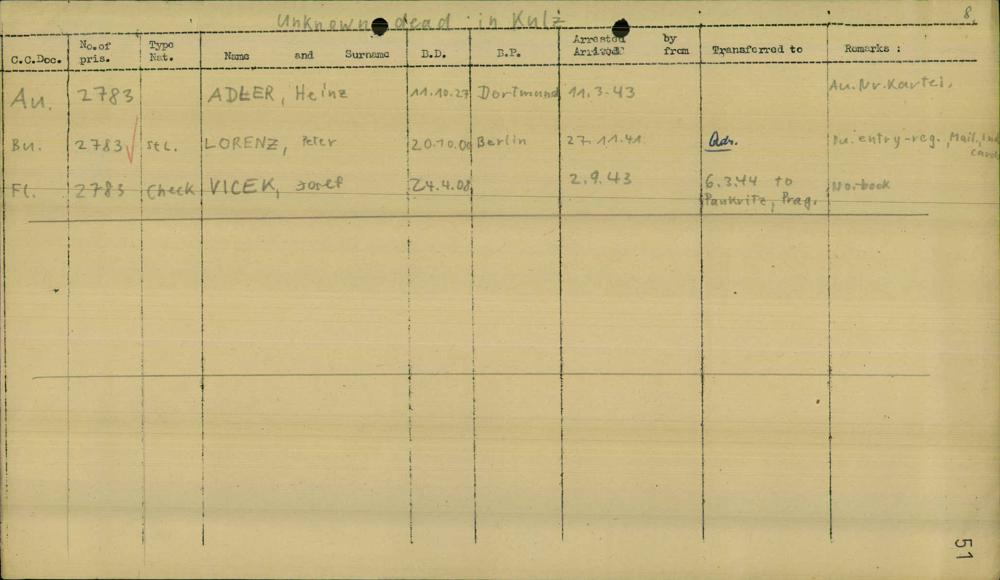 Unknown dead in Kulz 8.
C.C.Doc. No. of pris. Type Nat. Name and Surname B.D. B.P. Arrested Arrived by from Transferred to Remarks :
Au. 2783 ADLER, Heinz 11.10.27 Dortmund 11.3.43 Au. Nr. Kartei.
Bu. 2783 StL. LORENZ, Peter Berlin 27.11.41 entry-reg., Mail,
Fl. 2783 Check VICEK, Josef 24.4.08 2.9.43 6.3.44 to No.-book
Pankritz, Prag.
51